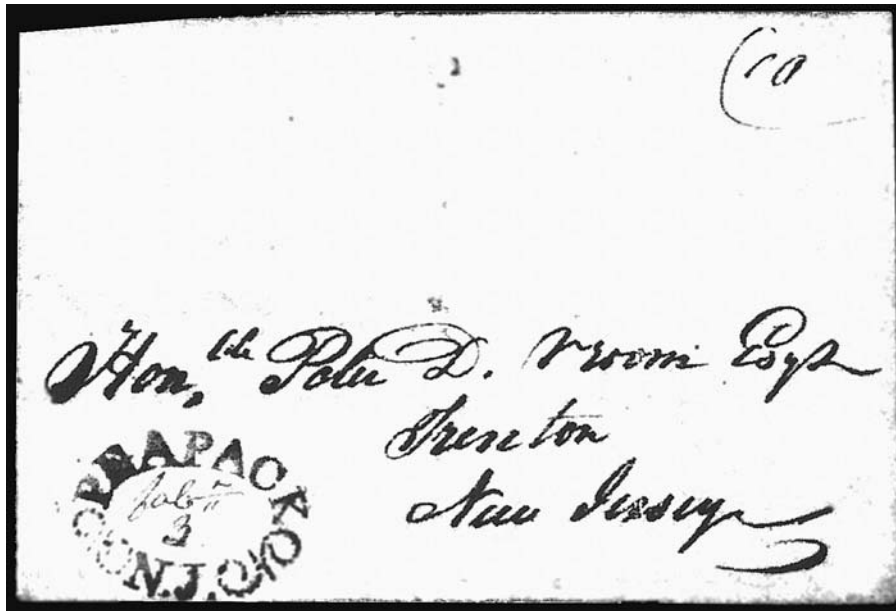 10
Hon,ble Peter D. Vroom Esqr
Trenton
New Jersey
PEAPACK
Feby
3
N.J.